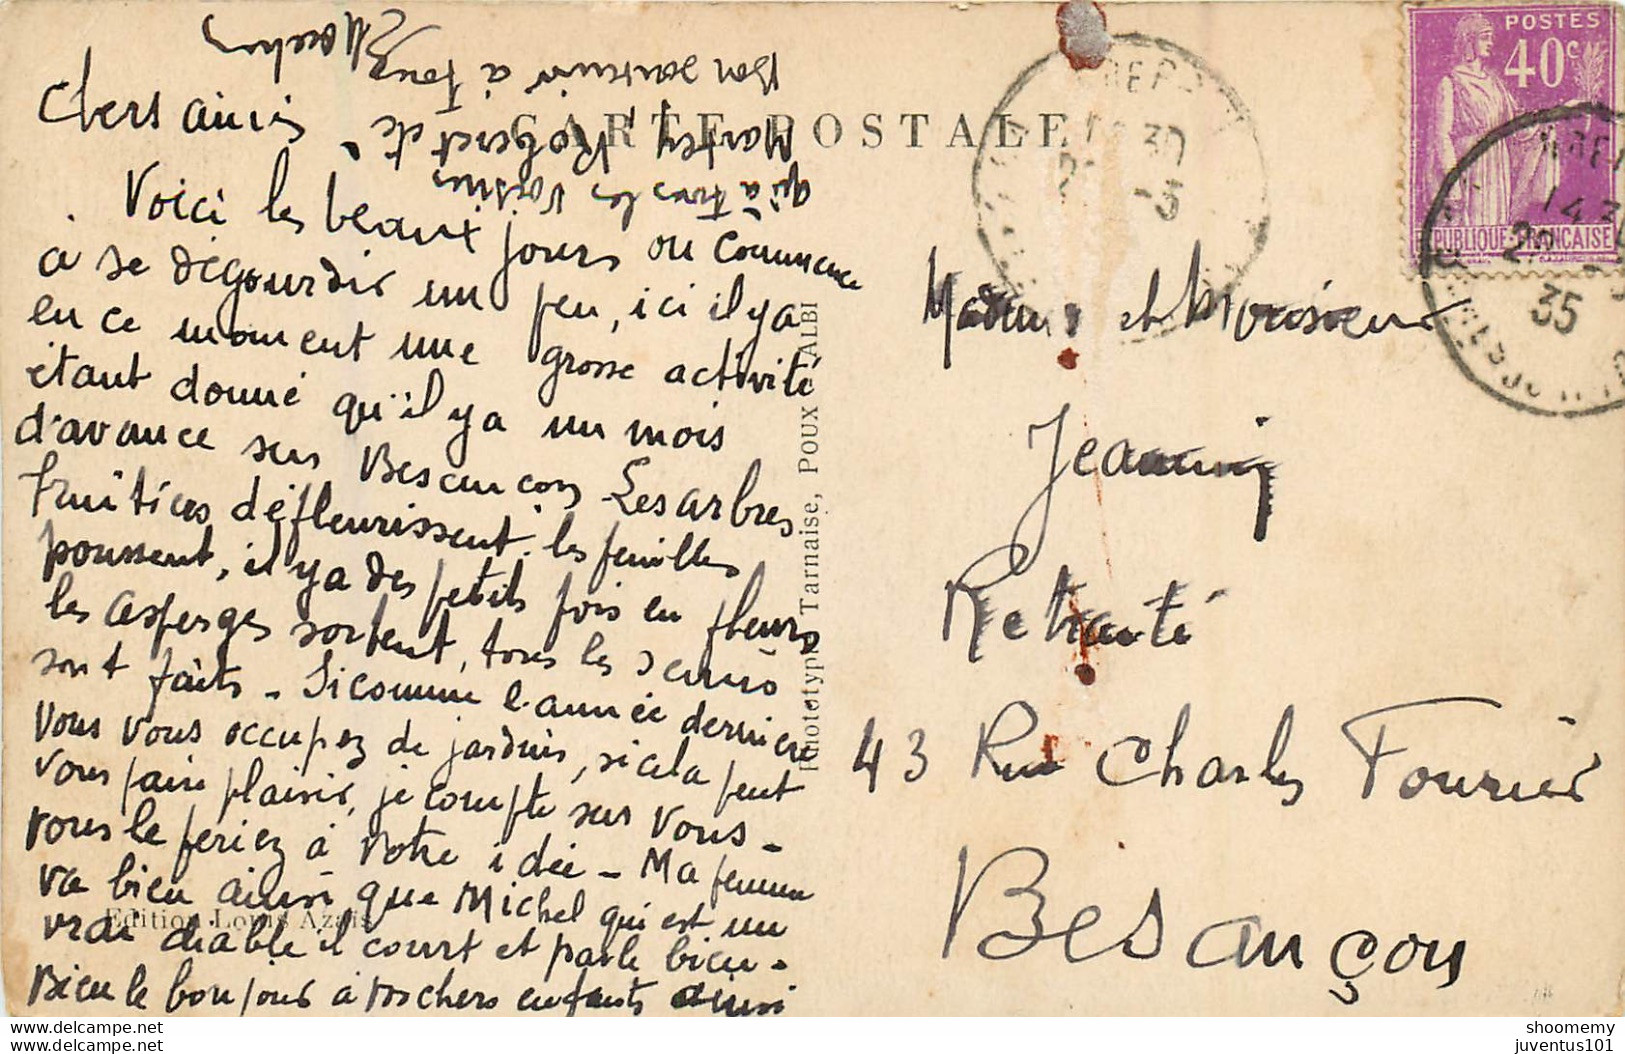 Chers amis
Voici les beaux jours ou commence
à se dégourdir un peu, ici il y a
en ce moment une grosse activité
étant donné qu'il y a un mois
d'avance sur Besançon Les arbres
fruitiers défleurissent. les feuilles
poussent, il y a des petits pois en fleurs
les asperges sortent, tous les semis
sont faits - Si comme l'année dernière
vous vous occupez de jardins, si cela peut
vous faire plaisir, je compte sur vous -
vous le feriez à votre idée - Ma femme
va bien ainsi que Michel qui est un
vrai diable il court et parle bien -
Bien le bonjour à vos chers enfants ainsi
qu'à tous les voisins
Robert etc
Bon souvenir à tous
CARTE POSTALE
Phototypie Tarnaise, POUX ALBI
Edition Louis Azaïs
POSTES
40c
REPUBLIQUE FRANÇAISE
14 30
35
Madame et Monsieur
Jeannin
Retraité
43 Rue Charles Fourier
Besançon
shoomemy
juventus101
delcampe.net
delcampe.net